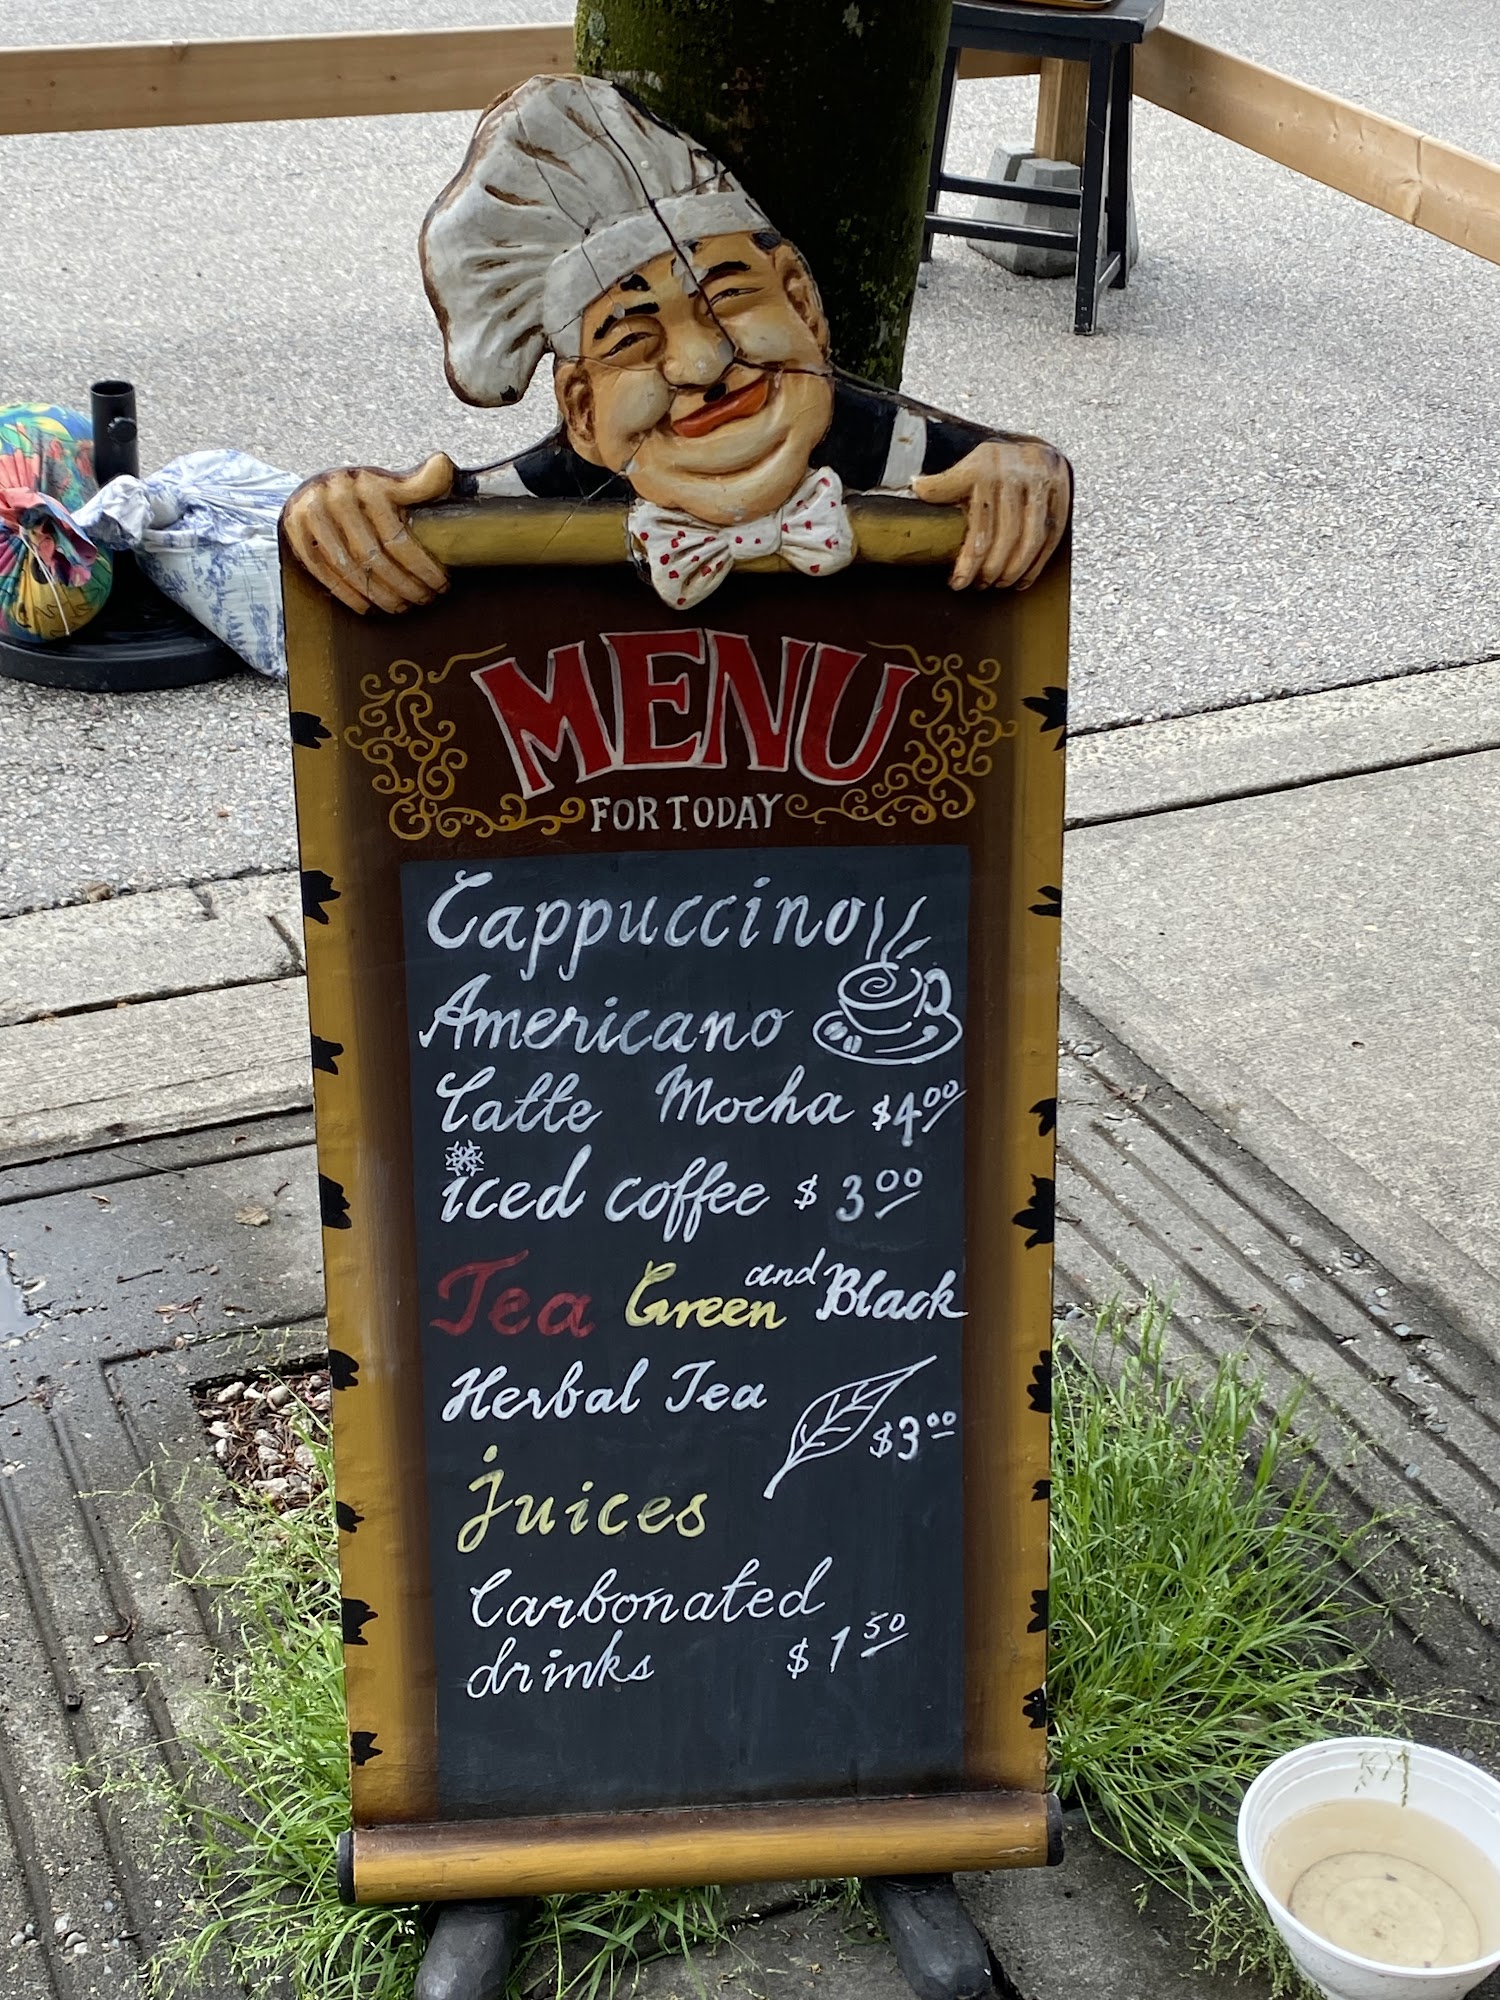 MENU
FOR TODAY
Cappuccino
Americano
Latte Mocha $4.00
iced coffee $3.00
Tea Green and Black
Herbal Tea
$3.00
juices
Carbonated
drinks $1.50